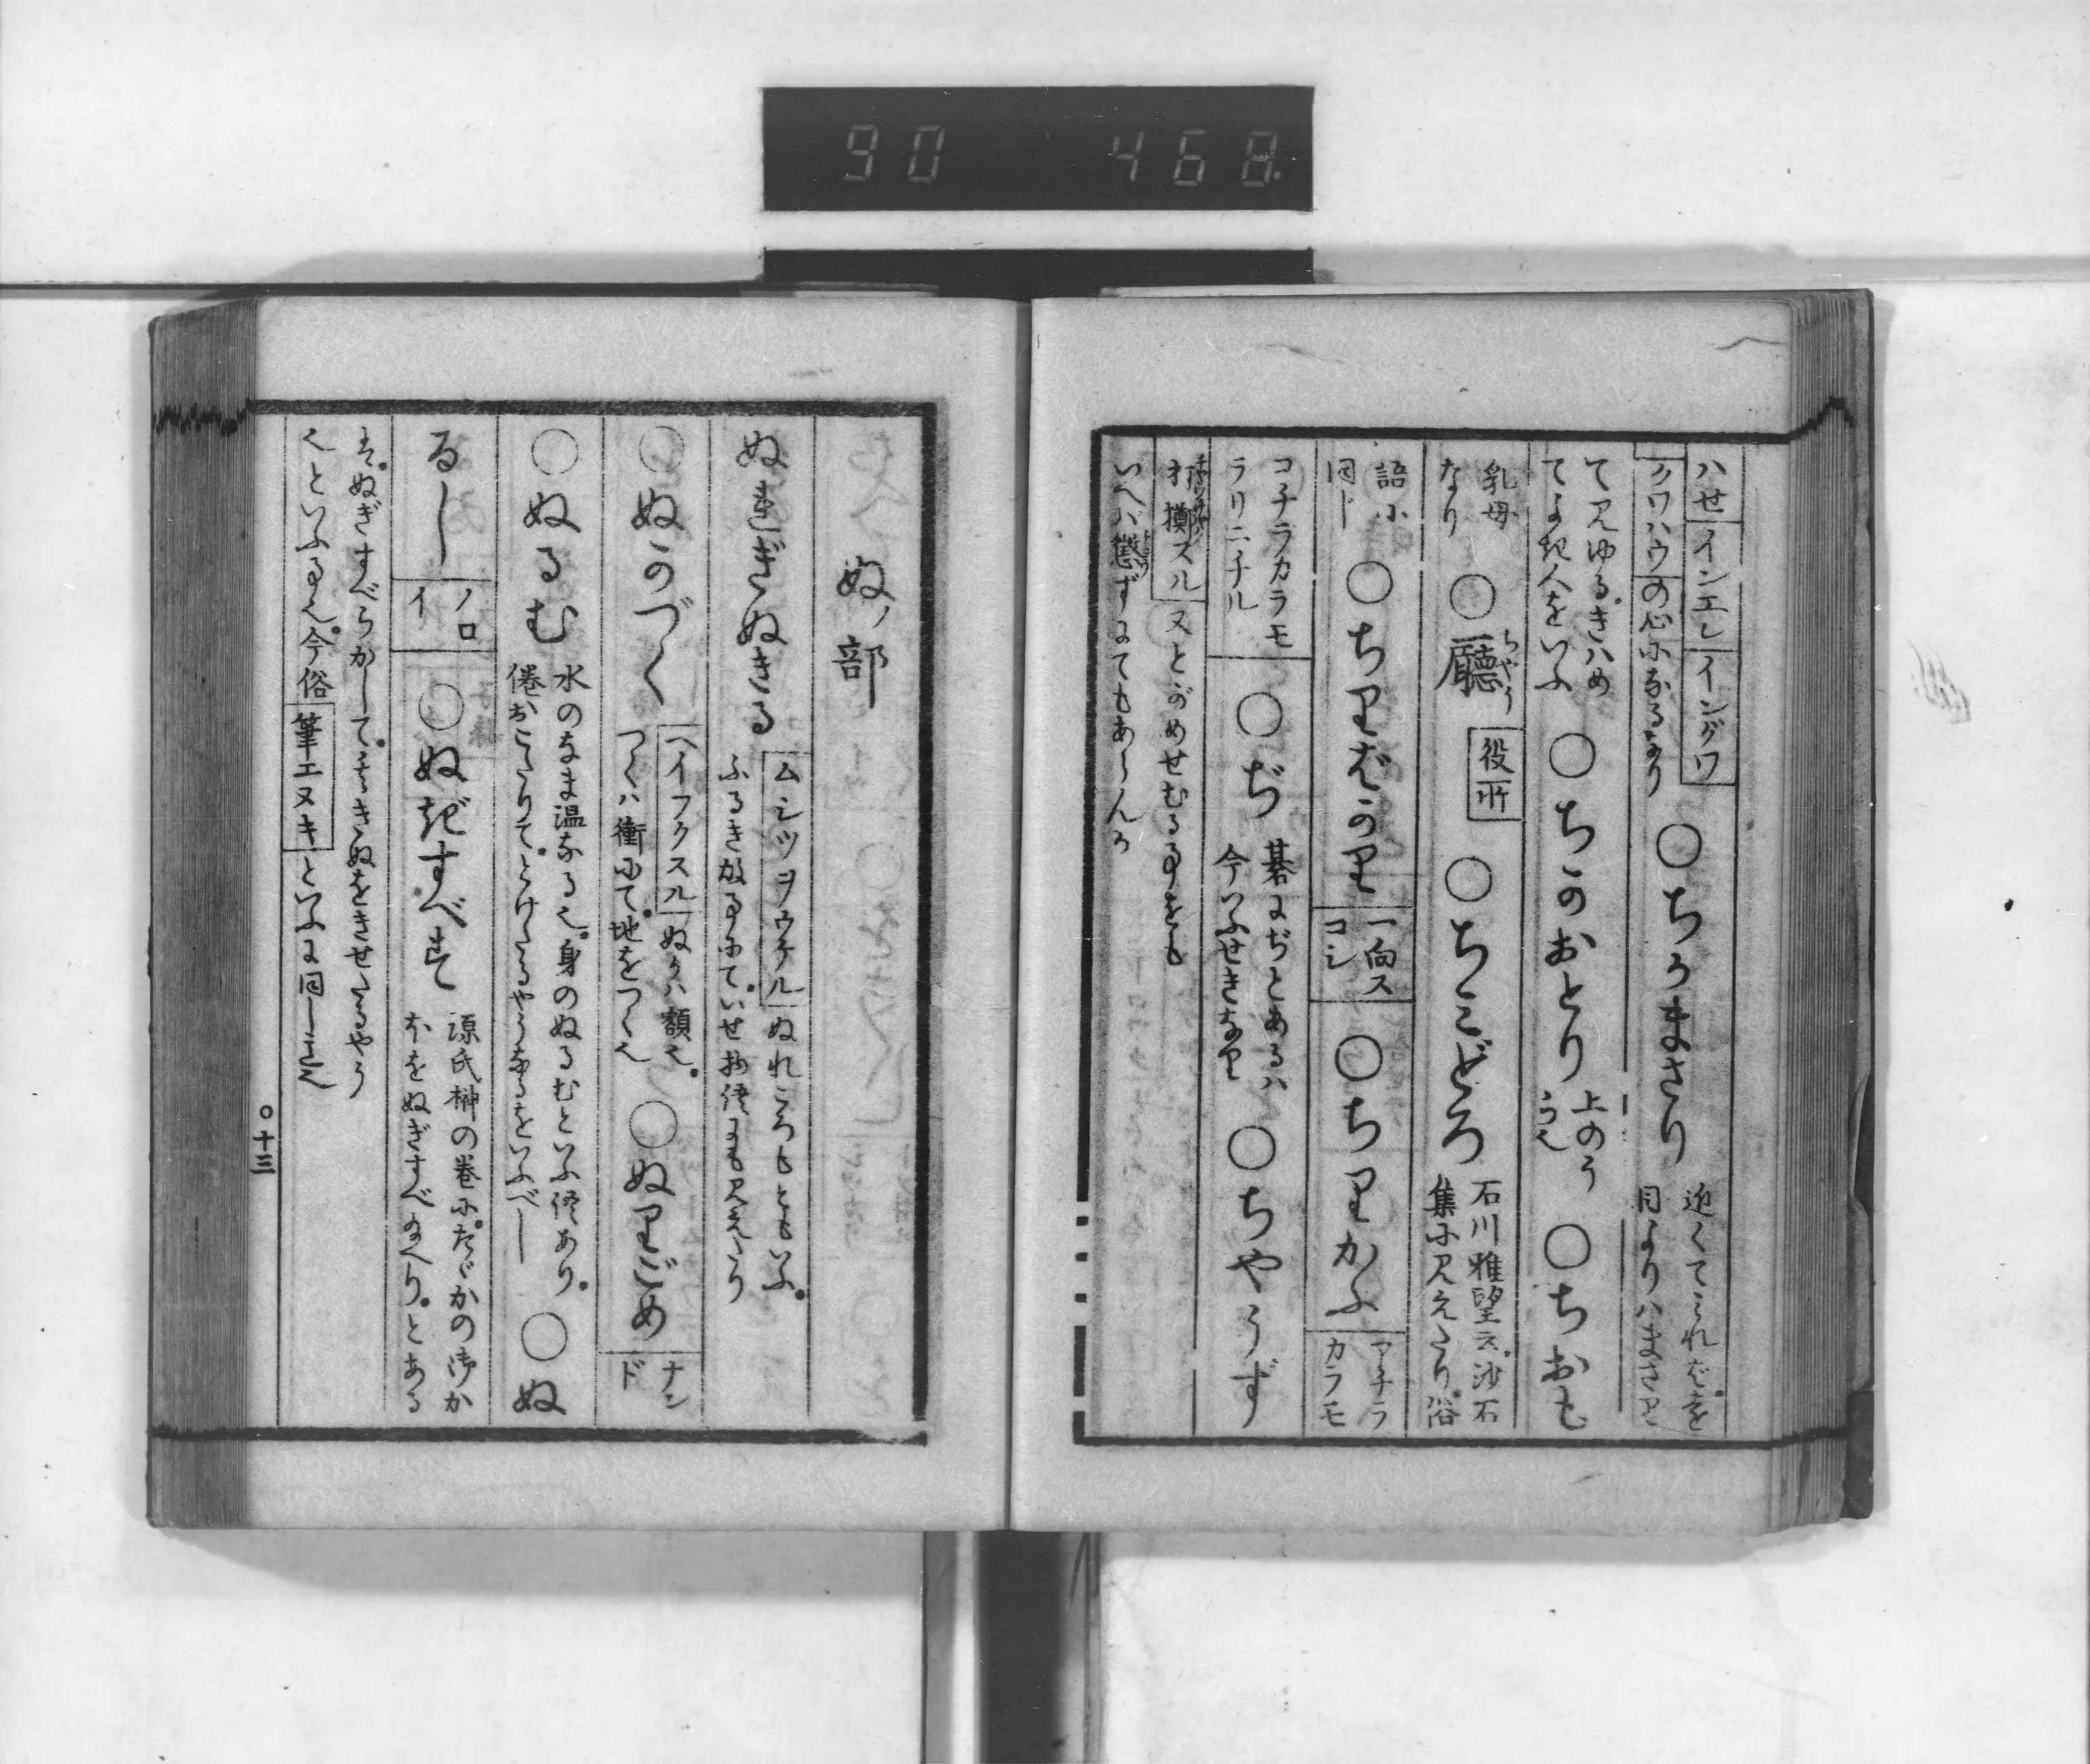 90 468
ハせ イン エレ イングワ
クワハウ の心になるなり
○ちかまさり
近くてみればを
目よりはまさり
て見ゆるきはめ
てよき人をいふ
○ちごのおとり
上のう
らへ
○ちおも
乳母
なり
○廳 ちやう
役所
○ちみどろ
石川雅望云沙石
集に見えたり俗
語に
同じ
○ちりばかり
一向ス
コシ
○ちりかふ
アチラ
カラモ
コチラカラモ
ラリニチル
○ぢ
碁にぢとあるハ
今いふせきなり
○ちやうず
打擲スル 又とがめせむる事をも
いへハ懲ずにてもあらんか
ぬノ部
ぬれぎぬきる
ムシツヲウケル ぬれころもともいふ
ふるき故事にていせ物語にも見えたり
○ぬかづく
ヘイフクスル ぬかハ額也
つくハ衝にて地をつく也
○ぬりごめ
ナン
ド
○ぬるむ
水のなま温なる也身のぬるむといふ詞あり
倦おこたりてとけたるやうなるをいふべし
○ぬ
るし
ノロ
イ
○ぬぎすべす
源氏榊の巻にたゞかの御か
ほをぬぎすべなへりとある
も ぬぎすべらかしてうきぬをきせたるやう
也といふ事也今俗 筆エヌキ といふに同じき也
○十三